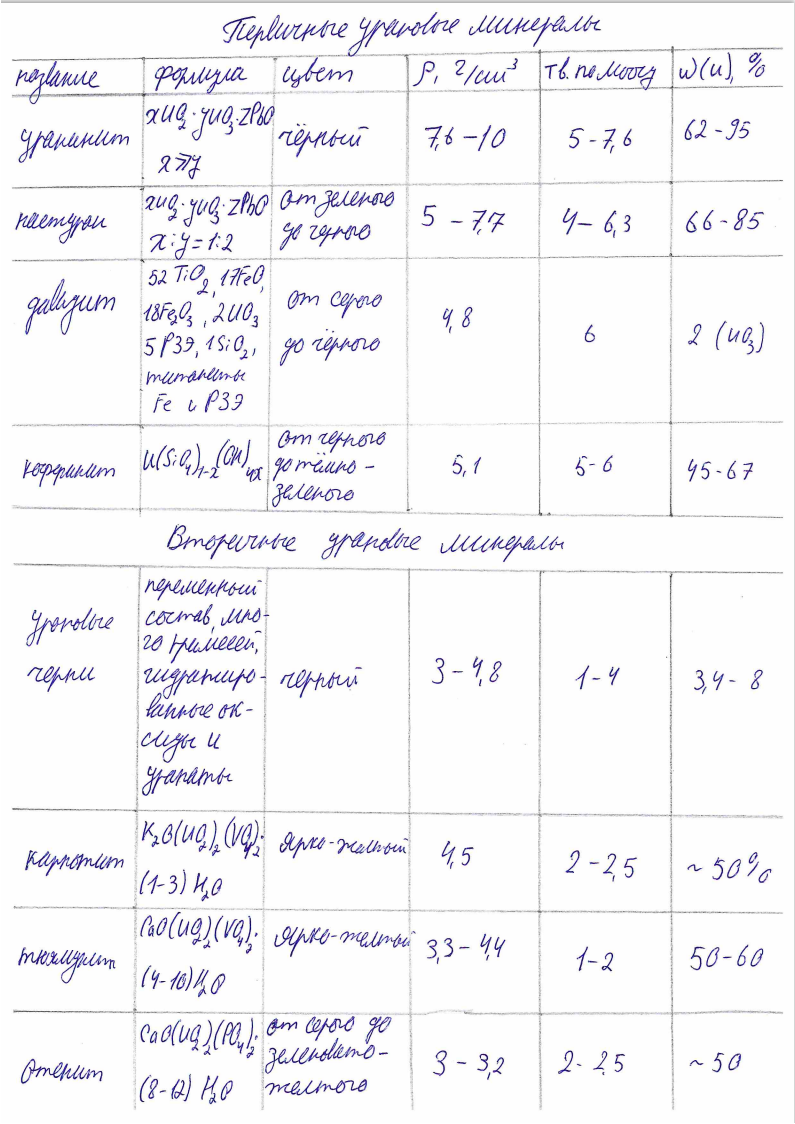 Первичные урановые минералы
название формула цвет ρ, г/cm³ тв. по моосу ω(u), %
уранинит xUO₂·yUO₃·zPbO x⩾y чёрный 7,6 – 10 5 – 7,6 62 – 95
настуран xUO₂·yUO₃·zPbO x:y = 1:2 от зеленого до черного 5 – 7,7 4 – 6,3 66 – 85
давидит 52 TiO₂, 17FeO, 18Fe₂O₃, 2UO₃ 5 РЗЭ, 1SiO₂, титанаты Fe и РЗЭ от серого до чёрного 4,8 6 2 (UO₃)
коффинит U(SiO₄)₁₋ₓ(OH)₄ₓ от черного до тёмно-зеленого 5,1 5-6 45-67
Вторичные урановые минералы
Урановые черни переменный состав, много примесей, гидратированные оксиды и уранаты черный 3 – 4,8 1-4 3,4 - 8
карнотит K₂O(UO₂)₂(VO₄)₂· (1-3) H₂O ярко-желтый 4,5 2 – 2,5 ~ 50%
тюямунит CaO(UO₂)₂(VO₄)₂· (4-10)H₂O ярко-желтый 3,3 – 4,4 1-2 50-60
отенит CaO(UO₂)₂(PO₄)₂· (8-12) H₂O от серого до зеленовато-желтого 3 – 3,2 2 - 2,5 ~ 50